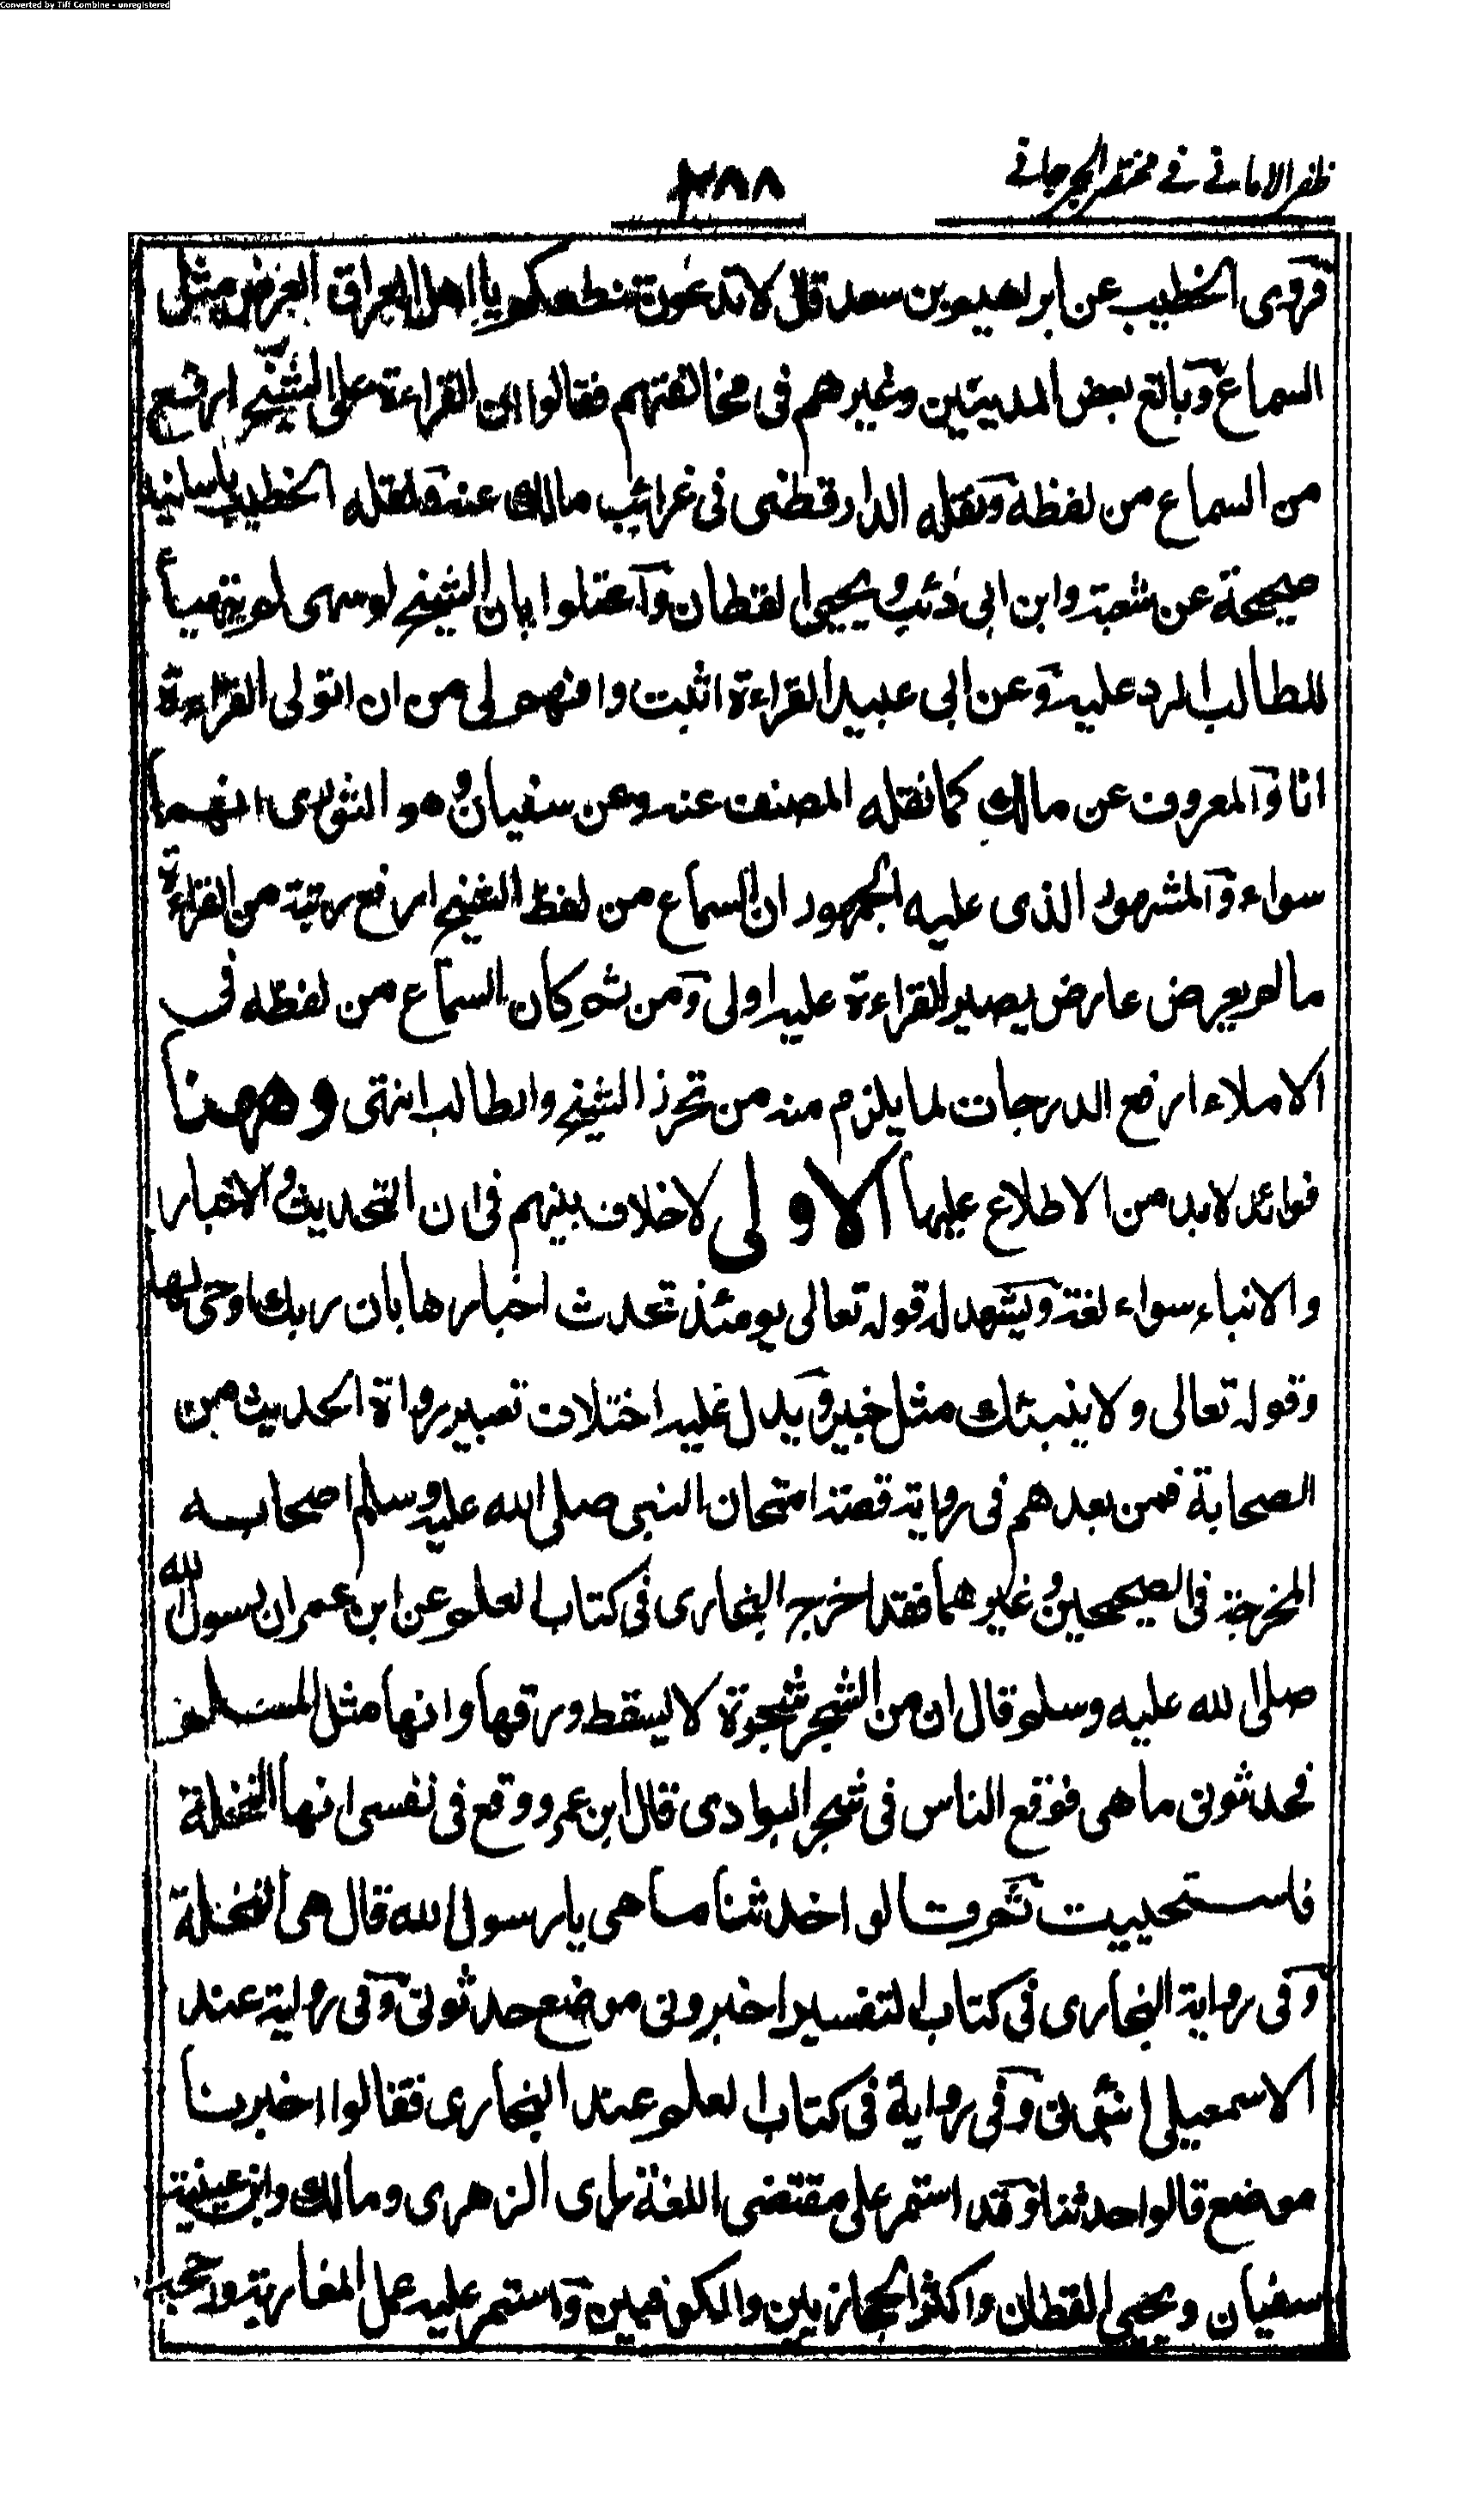 Converted by Tiff Combine - unregistered
ظفر الامانى فى مختصر الجرجانى
٢٨٨
فروى الخطيب عن ابراهيم بن سعد قال لا تدعون تنطعكم يا اهل العراق العرض مثل
السماع وبالغ بعض المدينين وغيرهم فى مخالفتهم فقالوا ان القراءة على الشيخ ارفع
من السماع من لفظه ونقله الدارقطنى فى غرائب مالك عنه ونقله الخطيب باسانيد
صحيحة عن شعبة وابن ابى ذئب ويحيى القطان واعتلوا بان الشيخ لو سهى لم يتهيأ
للطالب الرد عليه وعن ابى عبيد القراءة اثبت وافهم لى من ان اتولى القراءة
انا والمعروف عن مالك كما نقله المصنف عنه وعن سفيان وهو الثورى انهما
سواء والمشهور الذى عليه الجمهور ان السماع من لفظ الشيخ ارفع رتبة من القراءة
ما لم يعرض عارض يصير القراءة عليه اولى ومن ثم كان السماع من لفظه فى
الاملاء ارفع الدرجات لما يلزم منه من تحرز الشيخ والطالب انتهى وههنا
فوائد لا بد من الاطلاع عليها الاولى لا خلاف بينهم فى ان التحديث والاخبار
والانباء سواء لغة ويشهد له قوله تعالى يومئذ تحدث اخبارها بان ربك اوحى لها
وقوله تعالى ولا ينبئك مثل خبير ويدل عليه اختلاف تعبير رواة الحديث من
الصحابة فمن بعدهم فى رواية قصة امتحان النبى صلى الله عليه وسلم اصحابه
المخرجة فى الصحيحين وغيرهما فقد اخرج البخارى فى كتاب العلم عن ابن عمر ان رسول الله
صلى الله عليه وسلم قال ان من الشجر شجرة لا يسقط ورقها وانها مثل المسلم
فحدثونى ما هى فوقع الناس فى شجر البوادى قال ابن عمر ووقع فى نفسى انها النخلة
فاستحييت ثم قالوا حدثنا ما هى يا رسول الله قال هى النخلة
وفى رواية البخارى فى كتاب التفسير اخبرونى موضع حدثونى وفى رواية عند
الاسمعيلى انبئونى وفى رواية فى كتاب العلم عند البخارى فقالوا اخبرنا
موضع قالوا حدثنا وقد استمر على مقتضى اللغة راى الزهرى ومالك وابن عيينة
سفيان ويحيى القطان واكثر الحجازيين والكوفيين واستمر عليه عمل المغاربة ورجحه